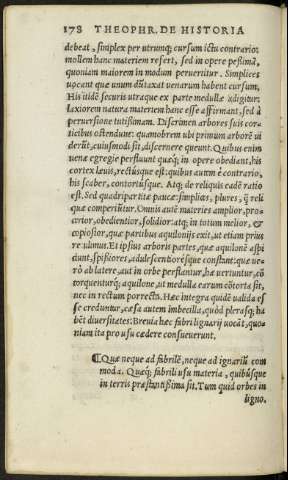 178 THEOPHR. DE HISTORIA
debeat, simplex per utrunq; cursum ictu contrario:
mollem hanc materiem refert, sed in opere pessimã,
quoniam maiorem in modum peruertitur. Simplices
uocant quæ unum dũtaxat uenarum habent cursum,
His itidẽ securis utraque ex parte medullæ adigitur:
laxiorem natura materiem hanc esse affirmant, sed à
peruersione tutissimam. Discrimen arbores suis cor=
ticibus ostendunt: quamobrem ubi primum arborẽ ui
derũt, cuiusmodi sit, discernere queunt. Quibus enim
uenæ egregie perfluunt quæq; in opere obediant, his
cortex læuis, rectúsque est: quibus autem è contrario,
his scaber, contortúsque. Atq; de reliquis eadẽ ratio
est. Sed quadripartitæ paucæ: simplias, plures, q̃ reli
quæ comperiũtur. Omnis autẽ materies amplior, pro=
cerior, obedientior, solidior: atq; in totum melior, &
copiosior, quæ partibus aquilonijs exit, ut etiam prius
retulimus. Et ipsius arboris partes, quæ aquilonẽ aspi
dunt, spissiores, adulescentiorésque constant: quæ ue=
rò ab latere, aut in orbe perflantur, hæ uertuntur, cõ
torquenturq; aquilone, ut medulla earum cõtorta sit,
nec in rectum porrecta. Hæc integra quidẽ ualida es=
se creduntur, cæsa autem imbecilla, quòd plerasq; ha
bẽt diuersitates: Breuia hæc fibri lignarij uocãt, quo=
niam ita pro usu cædere consueuerunt.
¶ Quæ neque ad fibrilẽ, neque ad ignariũ com
moda. Quæq; fibrili usu materia, quibúsque
in terris præstantissima sit. Tum quid orbes in
ligno.